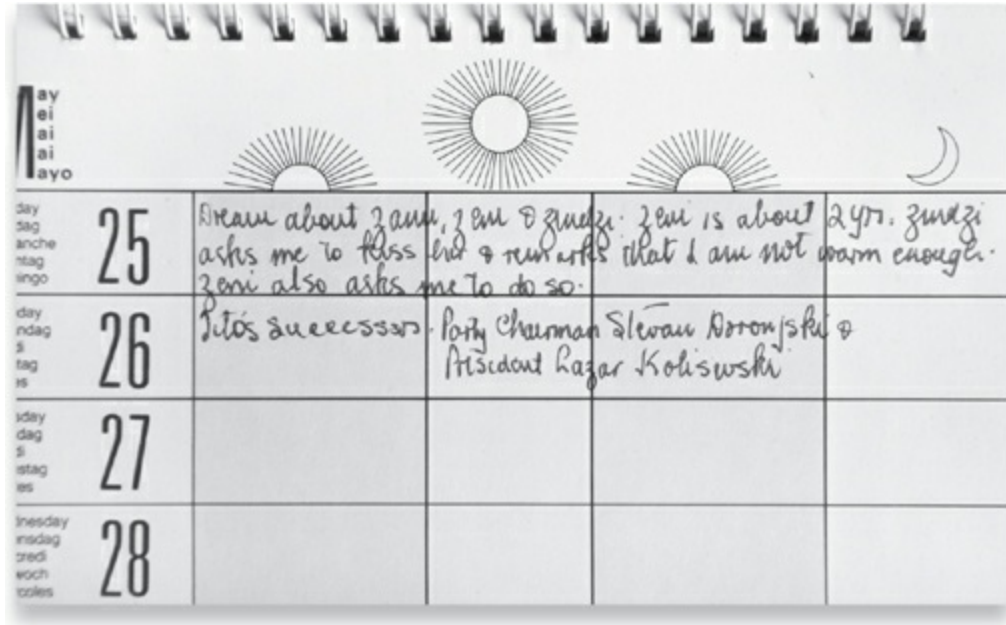 ay
ei
ai
ai
ayo
day
dag
anche
ntag
ingo
25
Dream about Zami, Zeni & Zindzi. Zeni is about 2 yrs. Zindzi
asks me to kiss her & remarks that I am not warm enough.
Zeni also asks me to do so.
day
ndag
di
tag
es
26
Tito's successors. Party Chairman Stevan Doronjski &
President Lazar Kolisevski
sday
dag
di
stag
es
27
nesday
nsdag
credi
woch
coles
28